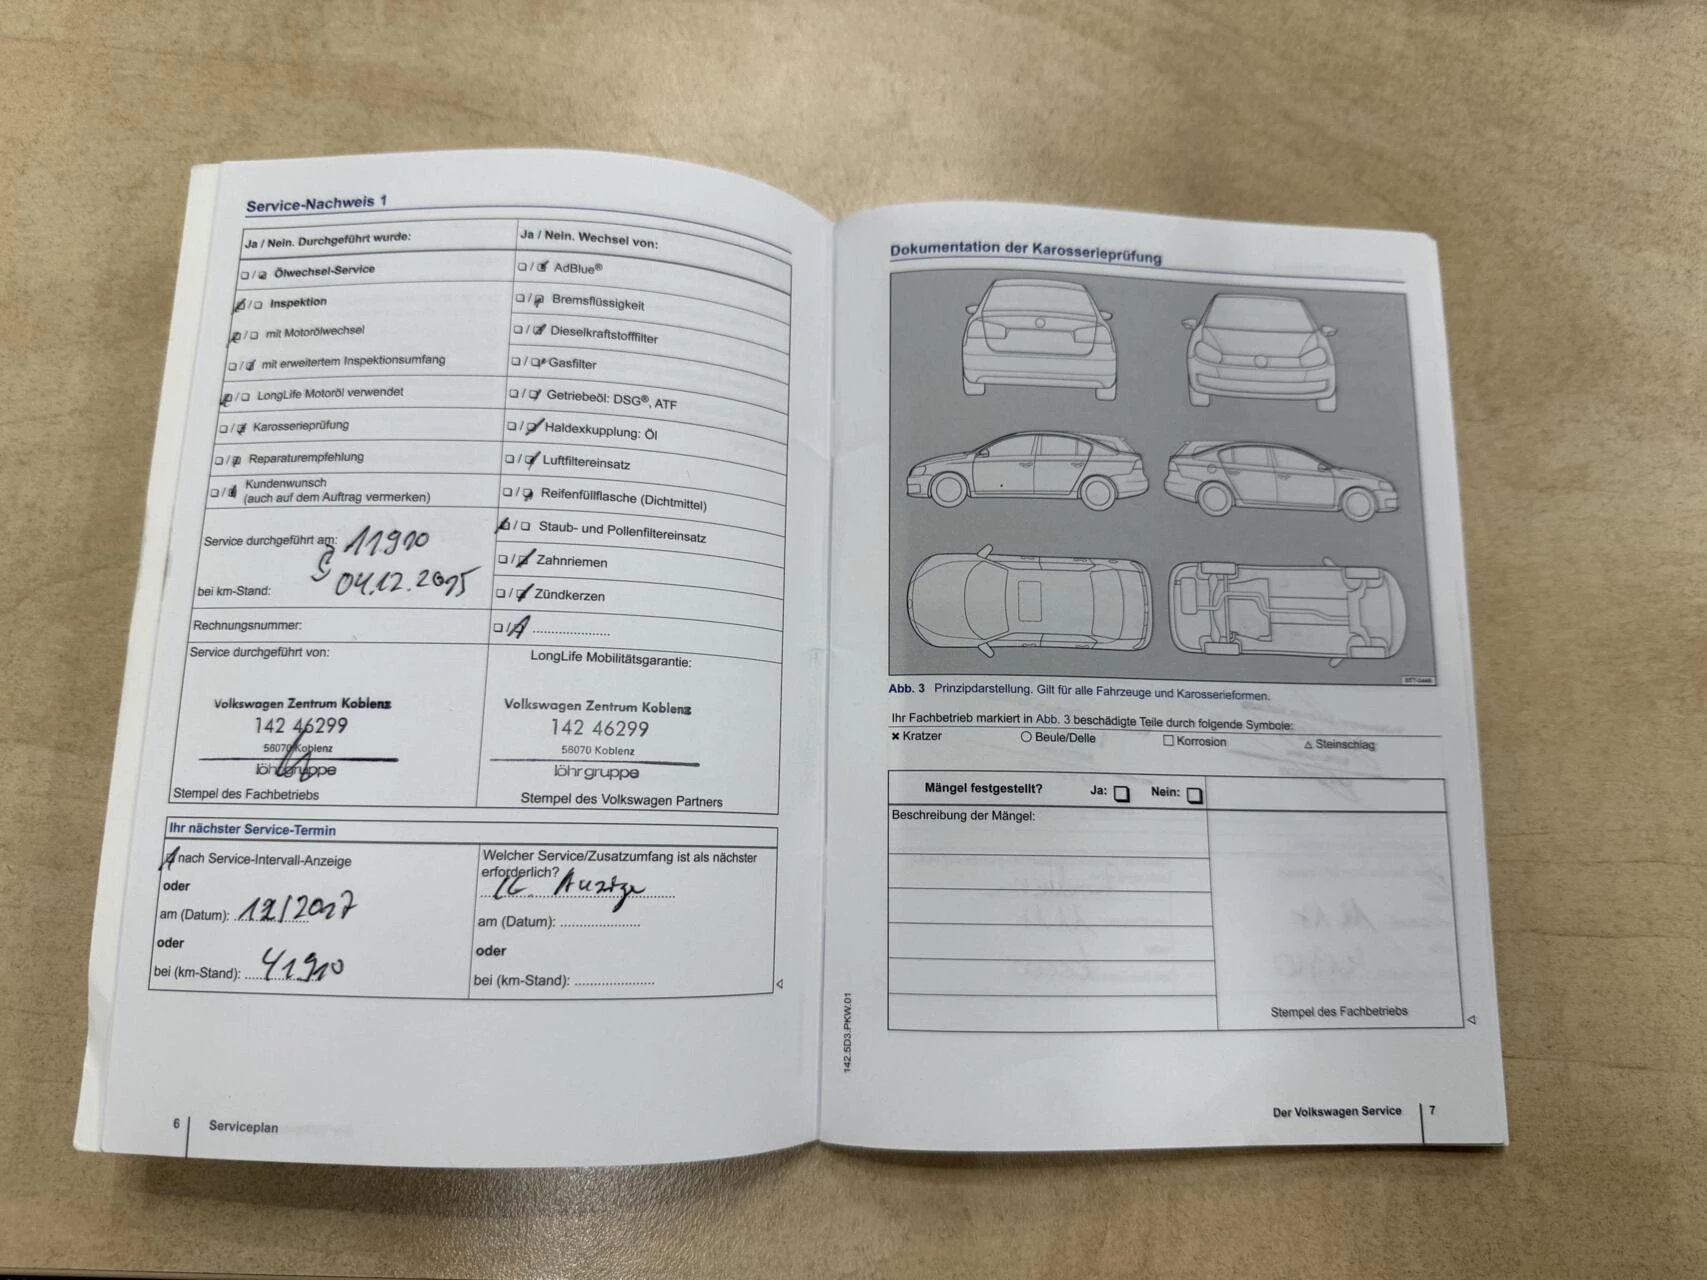 Service-Nachweis 1
Ja / Nein. Durchgeführt wurde:
Ölwechsel-Service
Inspektion
mit Motorölwechsel
mit erweitertem Inspektionsumfang
LongLife Motoröl verwendet
Karosserieprüfung
Reparaturempfehlung
Kundenwunsch
(auch auf dem Auftrag vermerken)
Service durchgeführt am: 11910
04.12.2015
bei km-Stand:
Rechnungsnummer:
Service durchgeführt von:
Volkswagen Zentrum Koblenz
142 46299
56070 Koblenz
löhrgruppe
Stempel des Fachbetriebs
Ja / Nein. Wechsel von:
AdBlue®
Bremsflüssigkeit
Dieselkraftstofffilter
Gasfilter
Getriebeöl: DSG®, ATF
Haldexkupplung: Öl
Luftfiltereinsatz
Reifenfüllflasche (Dichtmittel)
Staub- und Pollenfiltereinsatz
Zahnriemen
Zündkerzen
LongLife Mobilitätsgarantie:
Volkswagen Zentrum Koblenz
142 46299
56070 Koblenz
löhrgruppe
Stempel des Volkswagen Partners
Ihr nächster Service-Termin
nach Service-Intervall-Anzeige
oder
am (Datum): 12/2017
oder
bei (km-Stand): 41910
Welcher Service/Zusatzumfang ist als nächster
erforderlich?
am (Datum):
oder
bei (km-Stand):
6 Serviceplan
Dokumentation der Karosserieprüfung
Abb. 3 Prinzipdarstellung. Gilt für alle Fahrzeuge und Karosserieformen.
Ihr Fachbetrieb markiert in Abb. 3 beschädigte Teile durch folgende Symbole:
Kratzer Beule/Delle Korrosion Steinschlag
Mängel festgestellt? Ja: Nein:
Beschreibung der Mängel:
Stempel des Fachbetriebs
142.5D3.PKW.01
Der Volkswagen Service 7